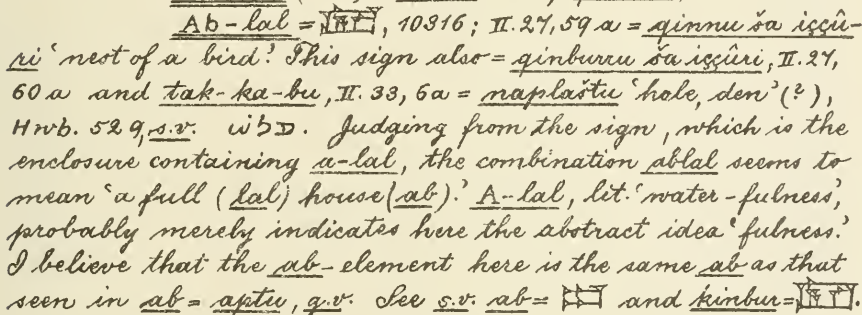 Ab-lal = , 10316; II. 27, 59 a = qinnu ša iççû-
ri ‘nest of a bird.’ This sign also = qinburru ša iççûri, II. 27,
60 a and tak-ka-bu, II. 33, 6a = naplaštu ‘hole, den’ (?),
Hwb. 529, s.v. Judging from the sign, which is the
enclosure containing a-lal, the combination ablal seems to
mean ‘a full (lal) house (ab).’ A-lal, lit. ‘water-fulness,’
probably merely indicates here the abstract idea ‘fulness.’
I believe that the ab-element here is the same ab as that
seen in ab = aptu, q.v. See s.v. ab = and kinbur = .